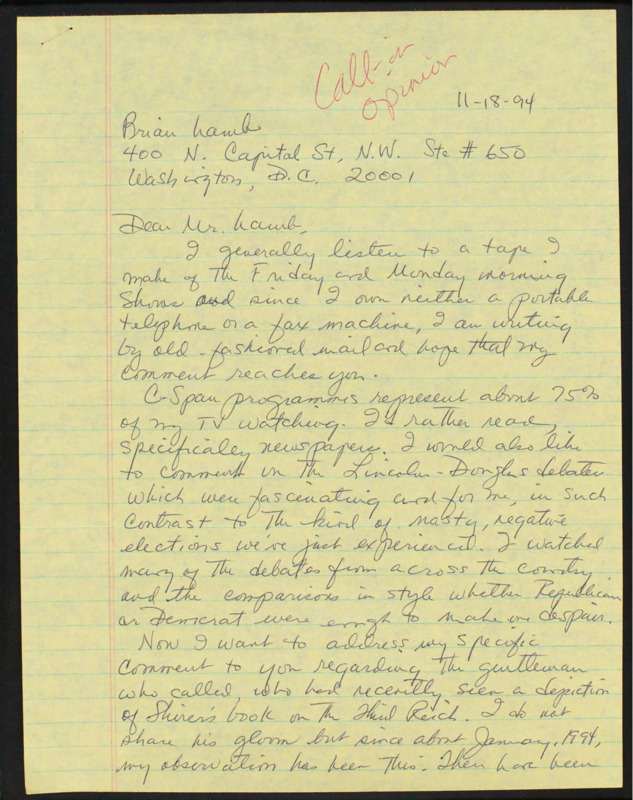 Call-in
opinion
11-18-94
Brian Lamb
400 N. Capital St, N.W. Ste # 650
Washington, D.C. 20001
Dear Mr. Lamb,
I generally listen to a tape I
make of the Friday and Monday morning
shows and since I own neither a portable
telephone or a fax machine, I am writing
by old-fashioned mail and hope that my
comment reaches you.
C-Span programmes represent about 75%
of my TV watching. I'd rather read,
specifically newspapers. I would also like
to comment on the Lincoln-Douglas debates
which were fascinating and for me, in such
contrast to the kind of nasty, negative
elections we've just experienced. I watched
many of the debates from across the country
and the comparisons in style whether Republican
or Democrat were enough to make one despair.
Now I want to address my specific
comment to you regarding the gentleman
who called, who had recently seen a depiction
of Shirer's book on the Third Reich. I do not
share his gloom but since about January, 1994,
my observation has been this. There have been